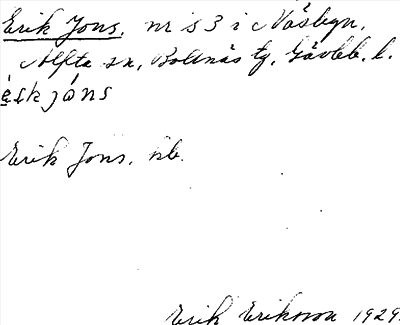 Erik Jons, nr s 3 i Näsbyn,
Alfta sn, Bollnäs tg, Gävleb. l.
éskjóns
Erik Jons, hb.
Erik Eriksson 1929.